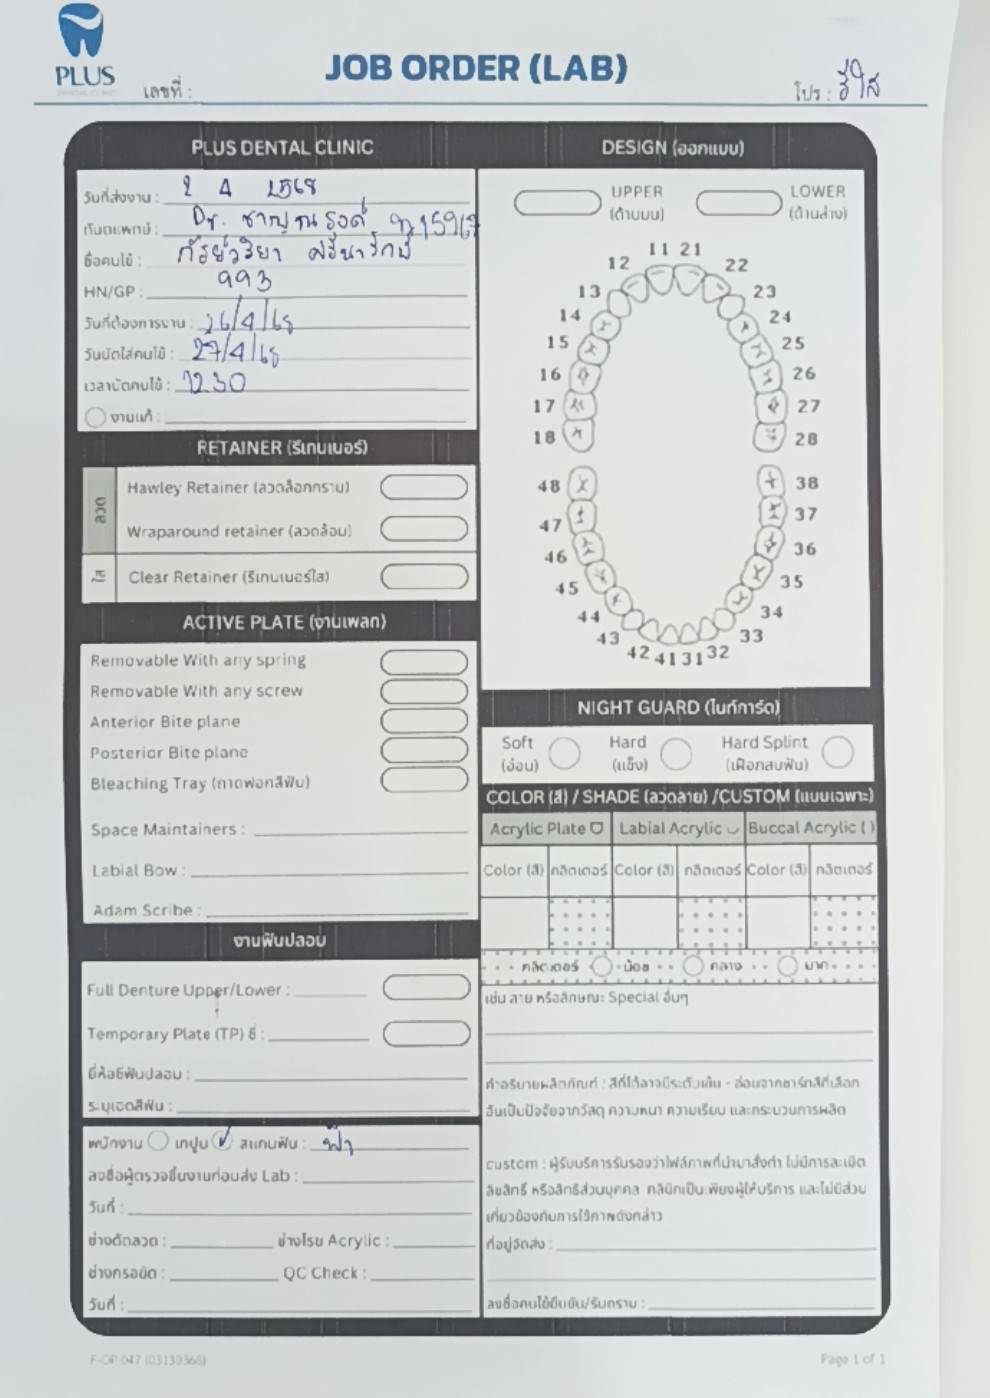 PLUS
DENTAL CLINIC
JOB ORDER (LAB)
เลขที่ :
โปร : รีใส
PLUS DENTAL CLINIC
วันที่ส่งงาน : 2 4 2568
ทันตแพทย์ : Dr.
ชื่อคนไข้ :
HN/GP : 993
วันที่ต้องการงาน : 26/4/68
วันนัดใส่คนไข้ : 27/4/68
เวลานัดคนไข้ : 12.30
งานแก้ :
RETAINER (รีเทนเนอร์)
ลวด
Hawley Retainer (ลวดล็อกกราม)
Wraparound retainer (ลวดล้อม)
ใส
Clear Retainer (รีเทนเนอร์ใส)
ACTIVE PLATE (งานเพลท)
Removable With any spring
Removable With any screw
Anterior Bite plane
Posterior Bite plane
Bleaching Tray (ถาดฟอกสีฟัน)
Space Maintainers :
Labial Bow :
Adam Scribe :
งานฟันปลอม
Full Denture Upper/Lower :
Temporary Plate (TP) ซี่ :
ยี่ห้อซี่ฟันปลอม :
ระบุเฉดสีฟัน :
พนักงาน เทปูน ✓ สแกนฟัน : ฟ้า
ลงชื่อผู้ตรวจชิ้นงานก่อนส่ง Lab :
วันที่ :
ช่างดัดลวด : ช่างโรย Acrylic :
ช่างกรอขัด : QC Check :
วันที่ :
DESIGN (ออกแบบ)
UPPER
(ด้านบน)
LOWER
(ด้านล่าง)
11 21
12 22
13 23
14 24
15 25
16 26
17 27
18 28
48 38
47 37
46 36
45 35
44 34
43 33
42 41 31 32
NIGHT GUARD (ไนท์การ์ด)
Soft
(อ่อน)
Hard
(แข็ง)
Hard Splint
(เฝือกสบฟัน)
COLOR (สี) / SHADE (ลวดลาย) /CUSTOM (แบบเฉพาะ)
Acrylic Plate Labial Acrylic Buccal Acrylic ( )
Color (สี) กลิตเตอร์ Color (สี) กลิตเตอร์ Color (สี) กลิตเตอร์
กลิตเตอร์ น้อย กลาง มาก
เช่น ลาย หรือลักษณะ Special อื่นๆ
คำอธิบายผลิตภัณฑ์ : สีที่ได้อาจมีระดับเข้ม - อ่อนจากชาร์ทสีที่เลือก
อันเป็นปัจจัยจากวัสดุ ความหนา ความเรียบ และกระบวนการผลิต
custom : ผู้รับบริการรับรองว่าไฟล์ภาพที่นำมาสั่งทำ ไม่มีการละเมิด
ลิขสิทธิ์ หรือสิทธิส่วนบุคคล คลินิกเป็นเพียงผู้ให้บริการ และไม่มีส่วน
เกี่ยวข้องกับการใช้ภาพดังกล่าว
ที่อยู่จัดส่ง :
ลงชื่อคนไข้ยืนยัน/รับทราบ :
F-OP-047 (03130368)
Page 1 of 1